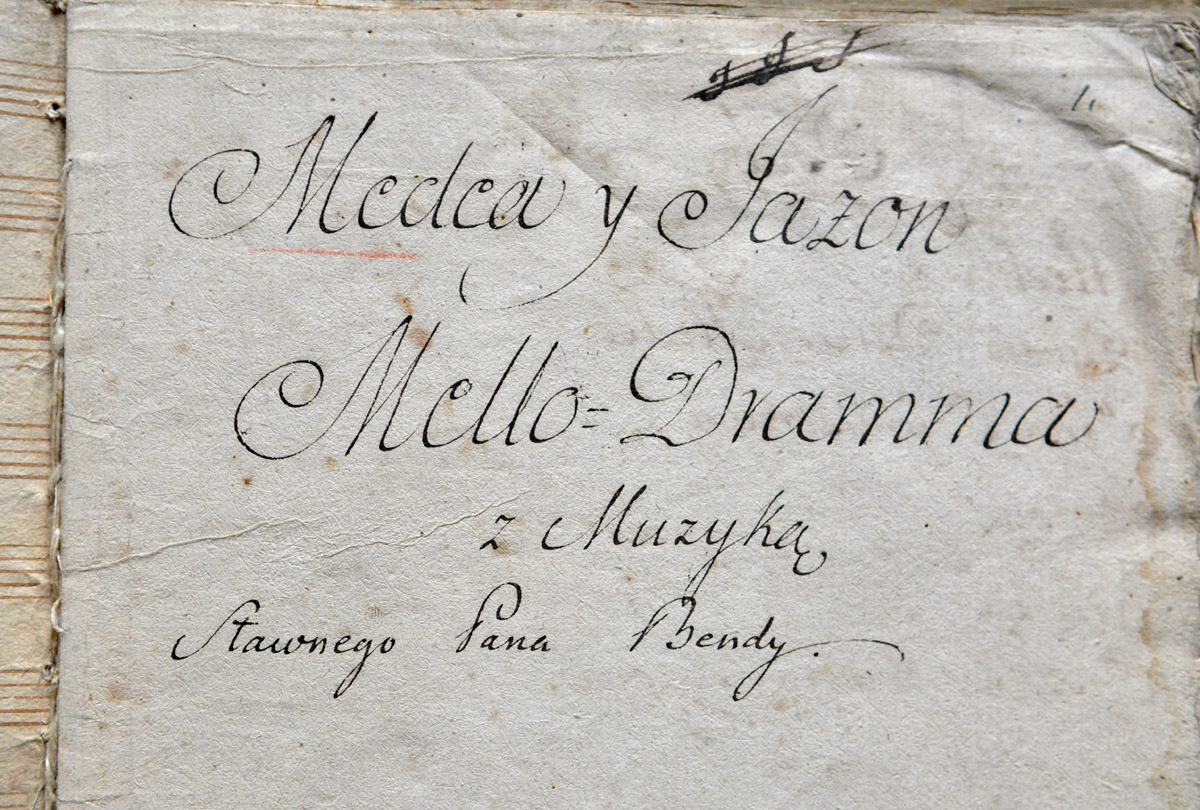 1.
Medea y Jazon
Mello=Dramma
z Muzyką
Sławnego Pana Bendy.